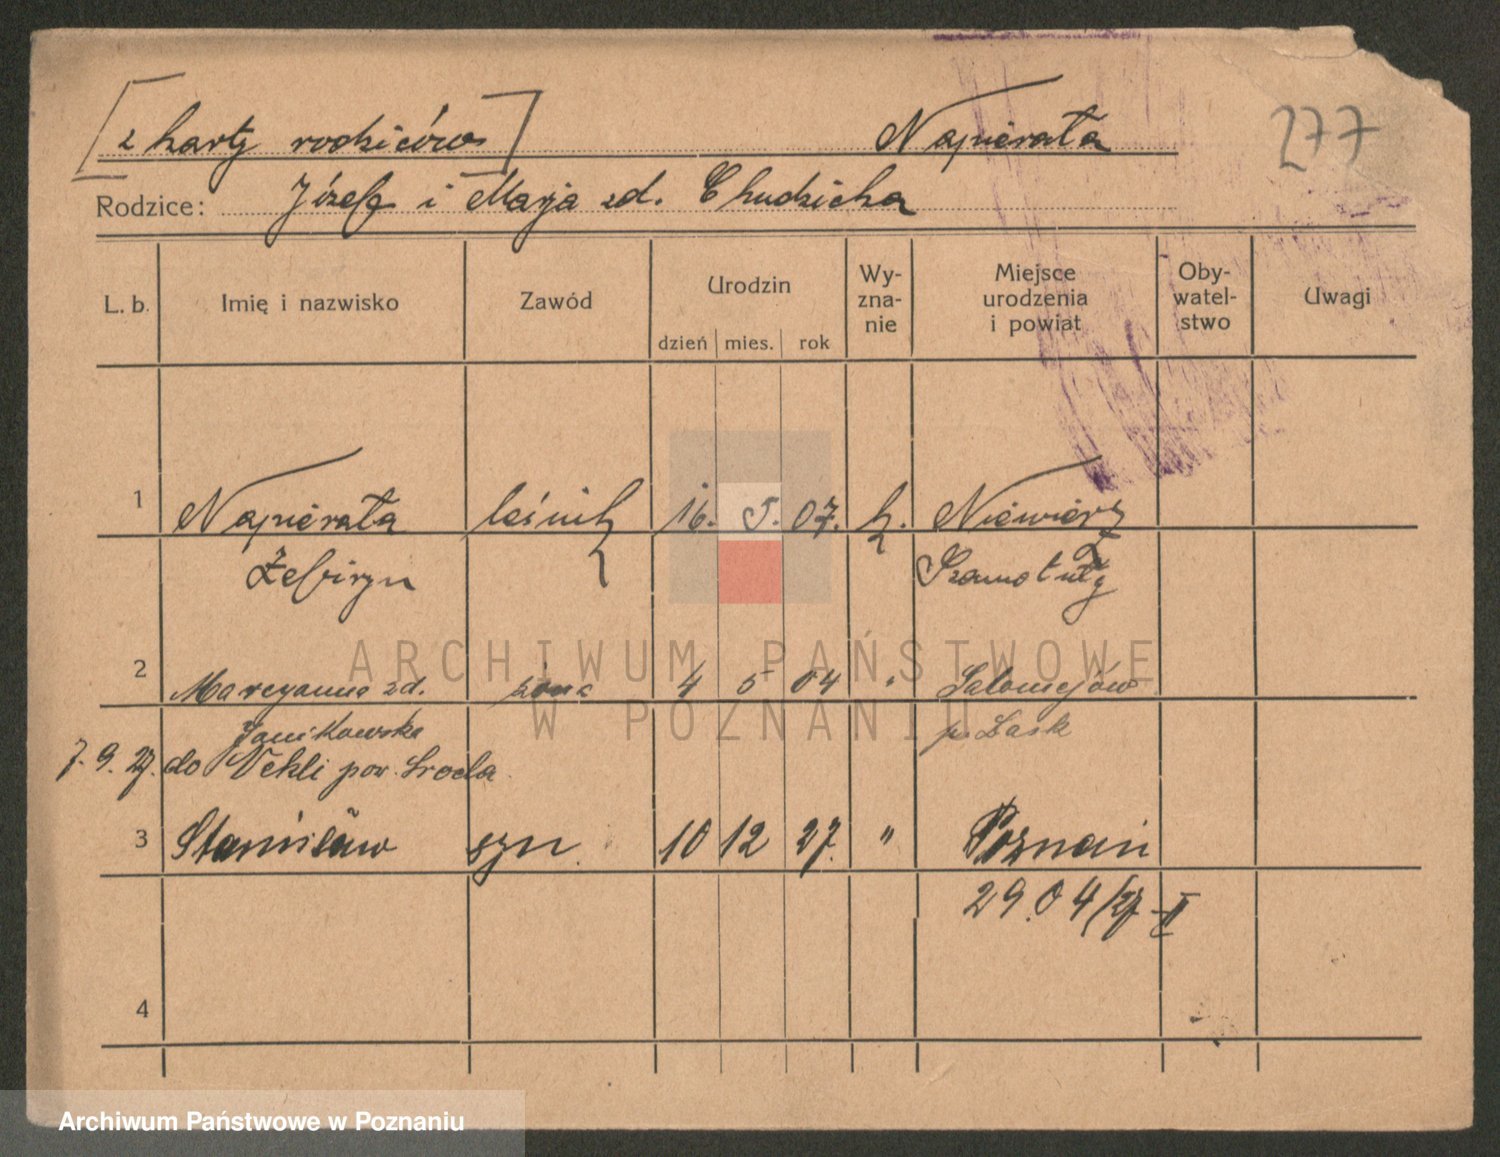 [z karty rodziców] Napierała
277
Rodzice: Józef i Marja zd. Chudzicka
L. b. Imię i nazwisko Zawód Urodzin Wy-zna-nie Miejsce urodzenia i powiat Oby-watel-stwo Uwagi
dzień mies. rok
1 Napierała leśnik 16. 5. 07. k. Niewierz
Zefiryn Szamotuły
ARCHIWUM PAŃSTWOWE
W POZNANIU
2 Marcyanna zd. żona 4 5 04 " Salomejów
Janikowska p. Łask
7. 9. 27. do Nekli pow. Środa
3 Stanisław syn 10 12 27. " Poznań
2904/27-II
4
Archiwum Państwowe w Poznaniu